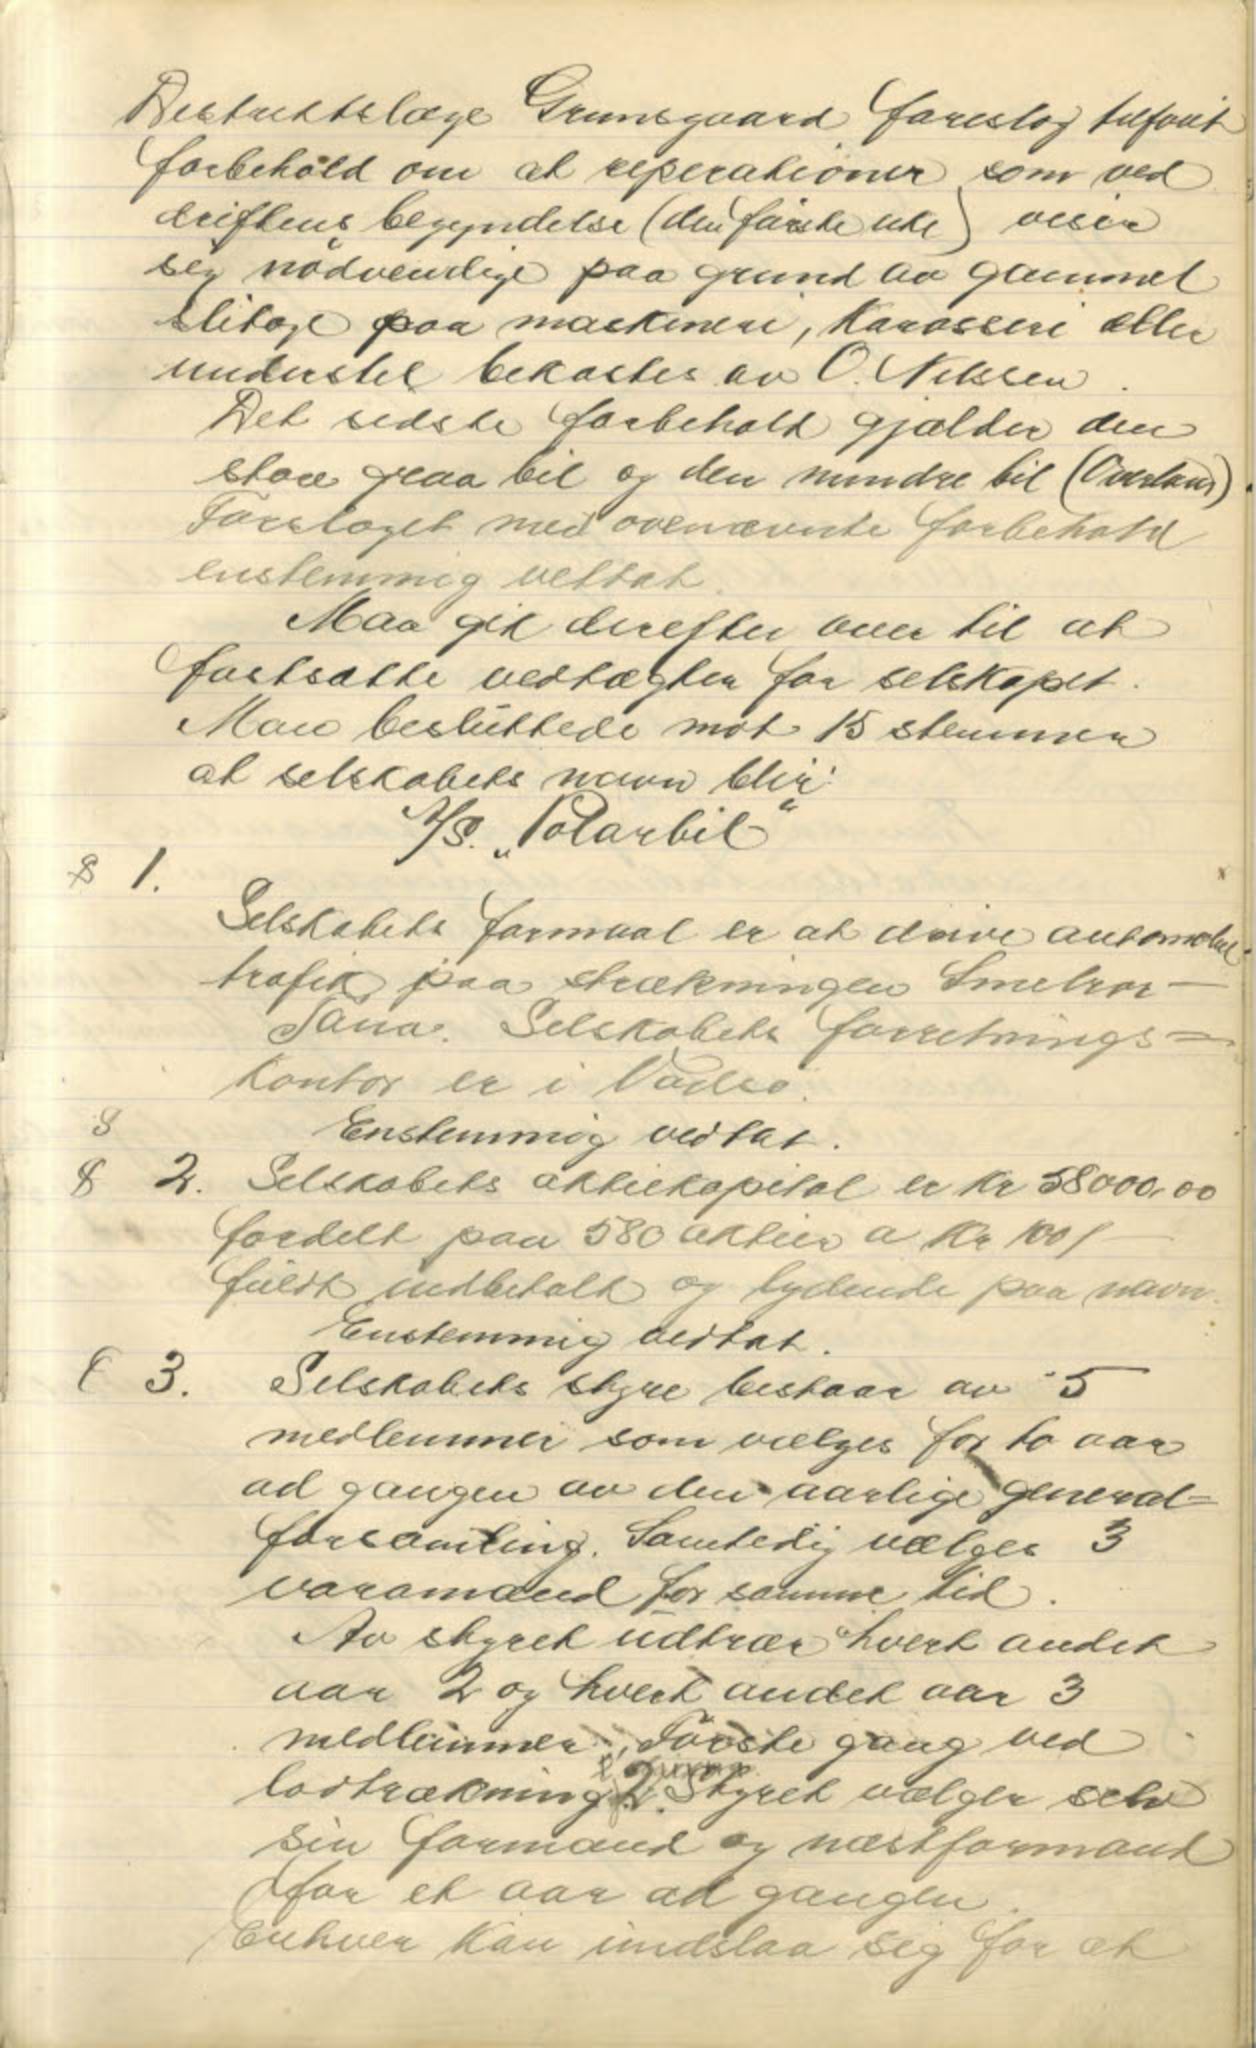 Destriktslæge Grunsgaard foreslog tilføit
forbehold om at reperationer som ved
driftens begyndelse (den første uke) viser
sig nødvendige paa grund av gammel
slitage paa maskineri, karosseri eller
understel bekostes av O. Nilssen.
Det sidste forbehold gjælder den
store graa bil og den mindre bil (Overland).
Forslaget med ovenævnte forbehold
enstemmig vettat.
Maa gik derefter over til at
fastsætte vedtægter for selskapet.
Man besluttede mot 15 stemmer
at selskabets navn blir:
A/S. „Polarbil“
§ 1.
Selskabets formaal er at drive automobil-
trafik paa strækningen Smelror—
Tana. Selskabets forretnings=
kontor er i Vadsø.
§
Enstemmig vedtat.
§ 2. Selskabets aktiekapital er kr 58000,00
fordelt paa 580 aktier a kr 100/—
fuldt indbetalt og lydende paa navn.
Enstemmig vedtat.
§ 3. Selskabets styre bestaar av 5
medlemmer som vælges for to aar
ad gangen av den aarlige general=
forsamling. Samtidig vælges 3
varamænd for samme tid.
Av styret udtrær hvert andet
aar 2 og hvert andet aar 3
medlemmer. Første gang ved
lodtrækning 2. Styret vælger selv
sin formand og næstformand
for et aar ad gangen.
Enhver kan undslaa sig for at